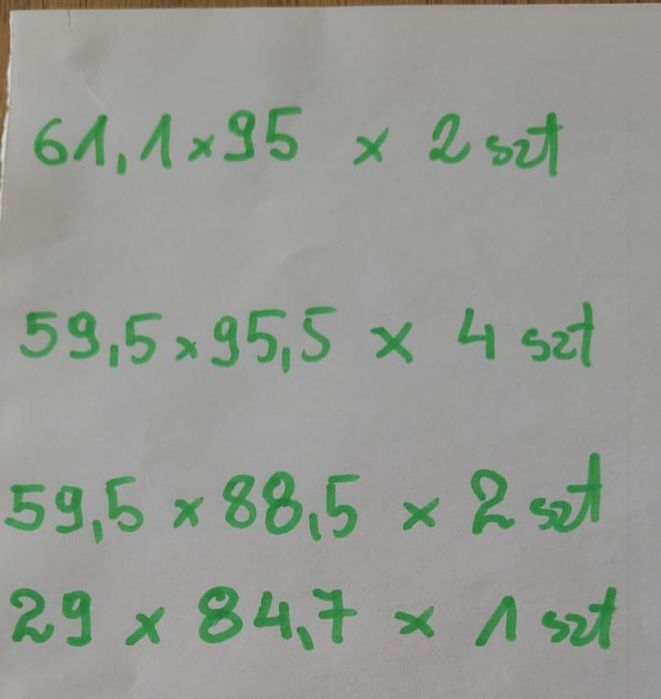 61,1 x 95 x 2 szt
59,5 x 95,5 x 4 szt
59,5 x 88,5 x 2 szt
29 x 84,7 x 1 szt